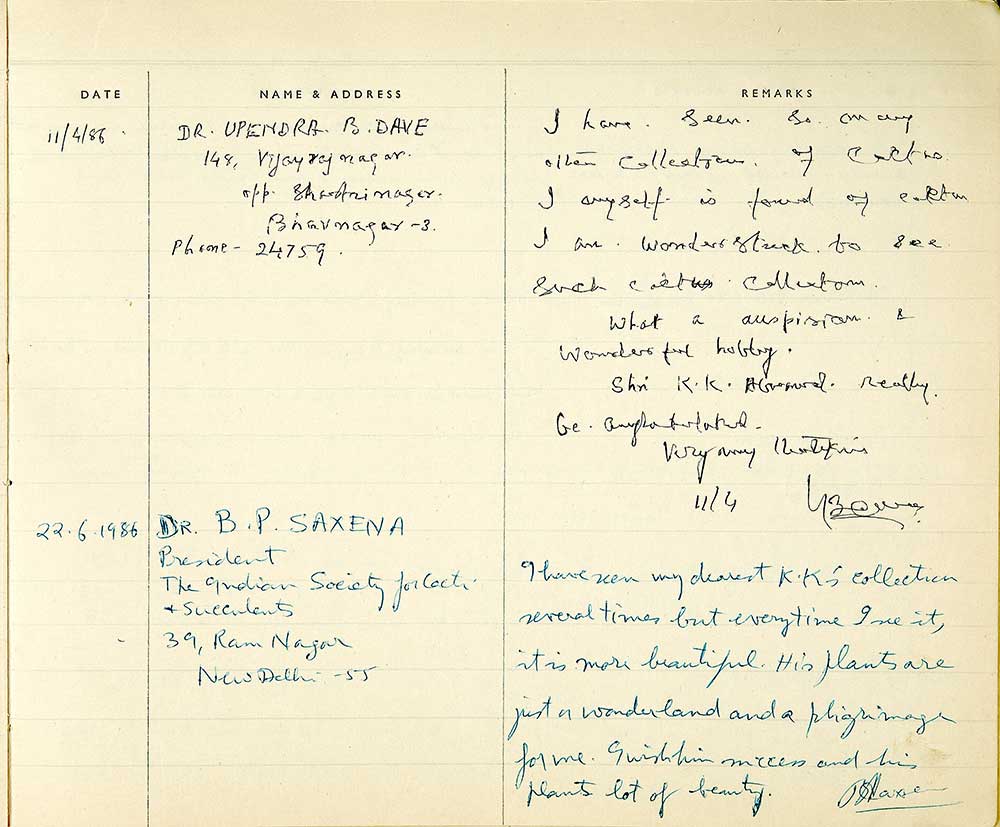 DATE NAME & ADDRESS REMARKS
11/4/86
DR. UPENDRA. B. DAVE
148, Vijayrajnagar.
opp. Shastrinagar.
Bhavnagar-3.
Phone - 24759.
I have. Seen. So. many
other collections. of Cactus.
I myself. is found of cactus
I am. Wonderstruck. to see
such cactus. Collections.
What a auspision. &
Wonderful hobby.
Shri K.K. Really.
be.
Very very
11/4
22.6.1986
DR. B.P. SAXENA
President
The Indian Society for Cacti
+ Succulents
39, Ram Nagar
New Delhi - 55
I have seen my dearest K.K's collection
several times but everytime I see it,
it is more beautiful. His plants are
just a wonderland and a pligrimage
for me. I wish him success and his
plants lot of beauty.